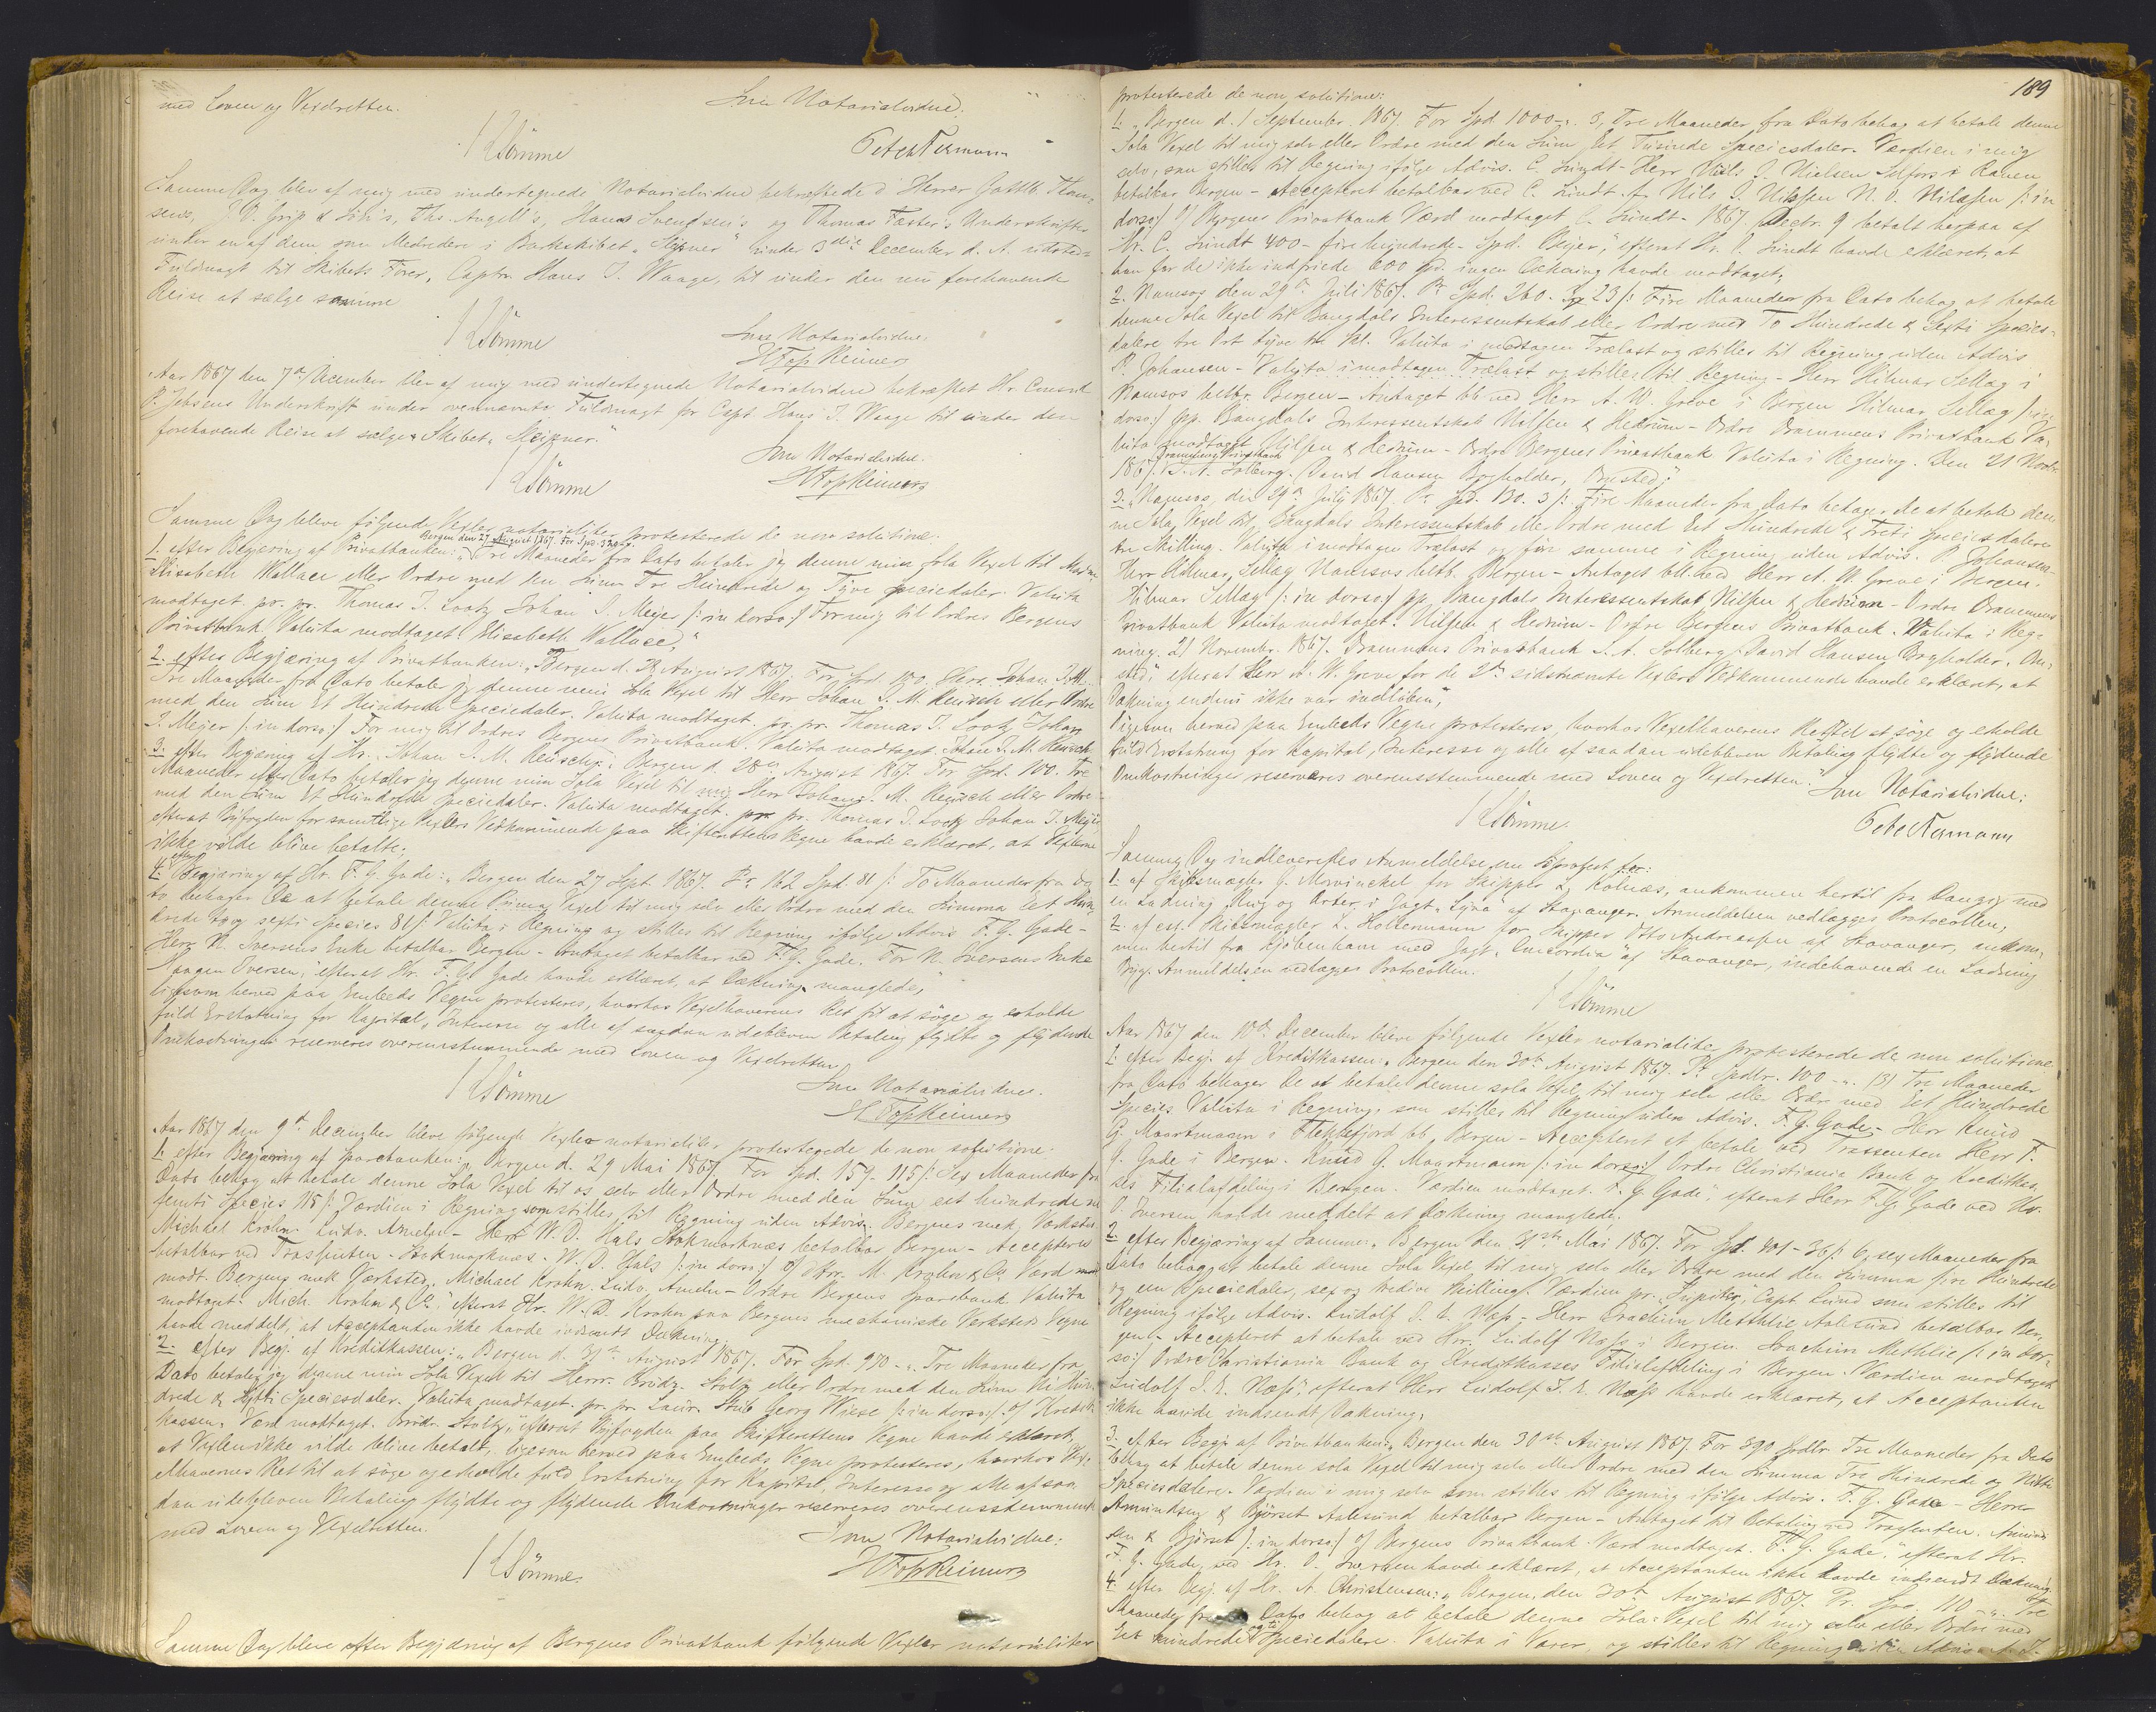 med Loven og Vexelretten.
Som Notarialvidne:
Peter Hermann
Samme Dag blev af mig med undertegnede Notarialvidne bekræftede d' Herrer Gottlb. Thom-
sens, Ths. Angell's, Hans Svendsen's og Thomas Fasters Underskrifter
under en af dem som Medredere i Barkskibet "Sleipner" under 3die December d. A. udstedt
Fuldmagt til Skibets Fører, Captn. Hans J. Waage, til under den nu forehavende
Reise at sælge samme
Som Notarialvidne:
Aar 1867 den 7de December blev af mig med undertegnede Notarialvidne bekræftet Hr. Consul
P. Jebsens Underskrift under ovennævnte Fuldmagt for Capt Hans J. Waage til under den
forehavende Reise at sælge Skibet "Sleipner."
Som Notarialvidne.
Samme Dag bleve følgende Vexler notarialiter protesterede de non solutione:
Bergen den 27 August 1867. For Spd. 320
1. efter Begjæring af Privatbanken: Tre Maaneder fra Dato betaler jeg denne min Sola Vexel til Madme
Elisabeth Wallace eller Ordre med den Sum Tre Hundrede og Tyve Speciedaler. Valuta
modtaget. pr. pr. Thomas J. Lootz Johan J. Meyer /: in dorso:/ For mig til Ordres Bergens
Privatbank Valuta modtaget Elisabeth Wallace."
2. efter Begjæring af Privatbanken: "Bergen d. 28 August 1867. For Spd. 100.
Tre Maaneder fra Dato betaler jeg denne min Sola Vexel til Herr Johan J. M. Reusch eller Ordre
med den Sum Et Hundrede Speciedaler. Valuta modtaget. pr. pr. Thomas J. Lootz Johan
J. Meier /: in dorso:/ For mig til Ordres Bergens Privatbank. Valuta modtaget. Johan J. M. Reusch
3. efter Begjæring af Hr. Johan J. M. Reusch: "Bergen d. 28de August 1867. For Spd. 100. Tre
Maaneder efter Dato betaler jeg denne min Sola Vexel til Herr Johan J. M. Reusch eller Ordre
med den Sum Et Hundrede Speciedaler. Valuta modtaget. pr. pr. Thomas J. Lootz Johan J. Meyer
efterat Byfogden for samtlige Vexlers Vedkommende paa Skifterettens Vegne havde erklæret, at Vexlerne
ikke vilde blive betalte;
4. efter Begjæring af Hr. F. G. Gade: "Bergen den 27 Sept. 1867. Pr 162 Spd. 81 /: To Maaneder fra Da-
to behager De at betale denne Prima Vexel til mig selv eller Ordre med den Summa Et Hun-
drede to og sexti Species 81 /: Valuta i Regning og stilles til Regning ifølge Advis F. G. Gade-
Herr N. Iversens Enke betalbar Bergen - Antaget betalbar ved F. G. Gade. For N. Iversens Enke
Haagen Iversen," efterat Hr. F. G. Gade havde erklæret, at Dækning manglede,
ligesom herved paa Embeds Vegne protesteres, hvorhos Vexelhaverens Ret til at søge og erholde
fuld Erstatning for Kapital, Interesse og alle af saadan udebleven Betaling flydte og flydende
Omkostninger reserveres overensstemmende med Loven og Vexelretten
Som Notarialvidne.
Aar 1867 den 9de December bleve følgende Vexler notarialiter protesterede de non solutione:
1. efter Begjæring af Sparebanken: "Bergen d. 29 Mai 1867. For Spd. 159. 115 /: Sex Maaneder fra
Dato behag at betale denne Sola Vexel til os selv eller Ordre med den Sum eet hundrede ni
femti Species 115 /: Værdien i Regning som stilles til Regning uden Advis. Bergens mek. Værksted.
Michael Krohn. Ludv. Ameln - Herr W. D. Hals Stokmarknæs betalbar Bergen - Accepteres
betalbar ved Trassenten - Stokmarknæs. W. D. Hals /: in dorso:/ M. Krohn & Co Værd
modt. Bergens mek Værksted. Michael Krohn. Ludv. Ameln - Ordre Bergens Sparebank. Valuta
modtaget. Mich. Krohn & Co." efterat Hr. W. D. Krohn paa Bergens mechaniske Verksteds Vegne
havde meddelt, at Acceptanten ikke havde indsendt Dækning.
2. efter Begj. af Kreditkassen: "Bergen d. 31te August 1867. For Spd. 970 -". Tre Maaneder fra
Dato betaler jeg denne min Sola Vexel til Herrr. Brødr. Stoltz eller Ordre med den Sum Ni Hun-
drede & Sytti Speciesdaler. Valuta modtaget. pr. pr. Laur. Stub Georg Wiese /: in dorso:/ Kredit-
kassen. Værd modtaget. Brødr. Stoltz," efterat Byfogden paa Skifterettens Vegne havde erklæret,
at Vexlen ikke vilde blive betalt, ligesom herved paa Embeds Vegne protesteres, hvorhos Vex-
elhavernes Ret til at søge og erholde fuld Erstatning for Kapital, Interesse og alle af saa-
dan udebleven Betaling flydte og flydende Omkostninger reserveres overensstemmende
med Loven og Vexelretten.
Som Notarialvidne:
Samme Dag bleve efter Begjæring af Bergens Privatbank følgende Vexler notarialiter
189
protesterede de non solutione:
1. "Bergen d. 1 September 1867. For Spd 1000 -". Tre Maaneder fra Dato behag at betale denne
Sola Vexel til mig selv eller Ordre med den Sum Et Tusinde Speciesdaler. Værdien i mig
selv, som stilles til Regning ifølge Advis. C. Sundt - Herr Niels J. Nielsen Selfors i Ranen
betalbar Bergen - Accepteret betalbar ved C. Sundt. Nils J. Nilssen N. O. Nilssen /: in
dorso:/ Bergens Privatbank Værd modtaget C. Sundt. 1867 Decbr. 9 betalt herpaa af
Hr. C. Sundt 400 - fire hundrede - Spd. Beier," efterat Hr. C. Sundt havde erklæret, at
han for de ikke indfriede 600 Spd. ingen Dækning havde modtaget,
2. Namsos den 29de Juli 1867. Pr Spd. 260. 3. 23 /: Fire Maaneder fra Dato behag at betale
denne Sola Vexel til Bangdals Interessentskab eller Ordre med To Hundrede & Sexti Species-
dalere tre Ort tyve tre Skl. Valuta i modtagen Trælast og stilles til Regning uden Advis
P. Johansen - Valuta i modtagen Trælast og stilles til Regning - Herr Hilmar Sellæg i
Namsos betbr. Bergen - Antaget bb. ved Herr A. W. Greve i Bergen Hilmar Sellæg /: in
dorso:/ pp. Bangdals Interessentskab Nilsen & Hedrum - Ordre Drammens Privatbank Va-
luta modtaget Nilsen & Hedrum - Ordre Bergens Privatbank Valuta i Regning. Den 21 Novbr
1867. Drammens Privatbank S. A. Solberg. David Hansen Bogholder, Onsted;"
3. "Namsos, den 29de July 1867. Pr Spd. 130. 3 /: Fire Maaneder fra Dato behager De at betale den-
ne Sola Vexel til Bangdals Interessentskab eller Ordre med Eet Hundrede & Treti Speciesdalere
tre Skilling. Valuta i modtagen Trælast og før samme i Regning uden Advis. P. Johansen-
Herr Hilmar Sellæg Namsos betb. Bergen - Antaget bb. ved Herr A. W. Greve i Bergen.
Hilmar Sellæg /: in dorso:/ pp. Bangdals Interessentskab Nilsen & Hedrum - Ordre Drammens
Privatbank Valuta modtaget. Nilsen & Hedrum - Ordre Bergens Privatbank. Valuta i Reg-
ning. 21 November 1867. Drammens Privatbank S. A. Solberg. David Hansen Bogholder. On-
sted," efterat Herr A. W. Greve for de 2de sidstnævnte Vexlers Vedkommende havde erklæret, at
Dækning endnu ikke var indløben,
ligesom herved paa Embeds Vegne protesteres, hvorhos Vexelhaverens Ret til at søge og erholde
fuld Erstatning for Kapital, Interesse og alle af saadan udebleven Betaling flydte og flydende
Omkostninger reserveres overensstemmende med Loven og Vexelretten.
Som Notarialvidne:
Samme Dag indleveredes Anmeldelse om Søprotest for:
1. af Skibsmægler J. Mowinckel for Skipper L. Kolnæs, ankommen hertil fra Danzig med
en Ladning Rug og Erter, i Jagt "Lyna" af Stavanger. Anmeldelsen vedlægges Protocollen,
2. af Skibsmægler L. Holtermann for Skipper Otto Andreassen af Stavanger, ankom-
men hertil fra Kjøbenhavn med Jagt "Concordia" af Stavanger, indehavende en Ladning
Byg. Anmeldelsen vedlægges Protocollen.
Aar 1867 den 10de December bleve følgende Vexler notarialite protesterede de non solutione
1. efter Begj. af Kreditkassen: "Bergen den 30te August 1867. Pr Spdlr. 100 -". Tre Maaneder
fra Dato behager De at betale denne sola Vexel til mig selv eller Ordre med Eet Hundrede
Species Valuta i Regning, som stilles til Regning uden Advis. F. G. Gade - Herr Knud
G. Maartmann i Flekkefjord bb. Bergen - Accepteret at betale ved Trassenten Herr F.
G. Gade i Bergen. Knud G. Maartmann /: in dorso:/ Ordre Christiania Bank og Kreditkas-
ses Filialafdeling i Bergen. Værdien modtaget. F. G. Gade"; efterat Herr F. G. Gade ved Hr.
O. Iversen havde meddelt at Dækning manglede.
2. efter Begjæring af Samme: "Bergen den 31te Mai 1867. For Spd. 401 - 36 /: 6, sex Maaneder fra
Dato behag at betale denne Sola Vexel til mig selv eller Ordre med den Summa fire Hundrede
og en Speciedaler, sex og tredive Skilling. Værdien pr. "Jupiter", Capt Lund som stilles til
Regning ifølge Advis. Ludolf J. E. Næss - Herr Joachim Methlie Aalesund betalbar Ber-
gen - Accepteret at betale ved Hr. Ludolf Næss i Bergen. Joachim Methlie /: in dor-
so:/ Ordre Christiania Bank og Kreditkasses Filialafdeling i Bergen. Værdien modtaget
Ludolf J. E. Næss", efterat Herr Ludolf J. E. Næss havde erklæret, at Acceptanten
ikke havde indsendt Dækning,
3. efter Begj. af Privatbanken: Bergen den 30te August 1867. For 390 Spdlr. Tre Maaneder fra Dato
behag at betale denne sola Vexel til mig selv eller Ordre med den Summa Tre Hundrede og Nitti
Speciesdalere. Værdien i mig selv som stilles til Regning ifølge Advis. F. G. Gade - Herrer
Amundsen & Bjørset Aalesund betalbar Bergen - Antaget til Betaling ved Trassenten. Amund-
sen & Bjørset /: in dorso:/ Bergens Privatbank. Værd modtaget. F. G. Gade," efterat Hr.
F. G. Gade, ved Hr. O. Iversen havde erklæret, at Acceptanten ikke havde indsendt Dækning.
4. efter Begj. af Hr. A. Christensen: "Bergen, den 30te August 1867. Pr. Spd. 110 -". Tre
Maaneder fra Dato behag at betale denne Sola-Vexel til mig selv eller Ordre med
Eet hundrede og ti Speciedalere. Valuta i Varer, og stilles til Regning uden Advis.